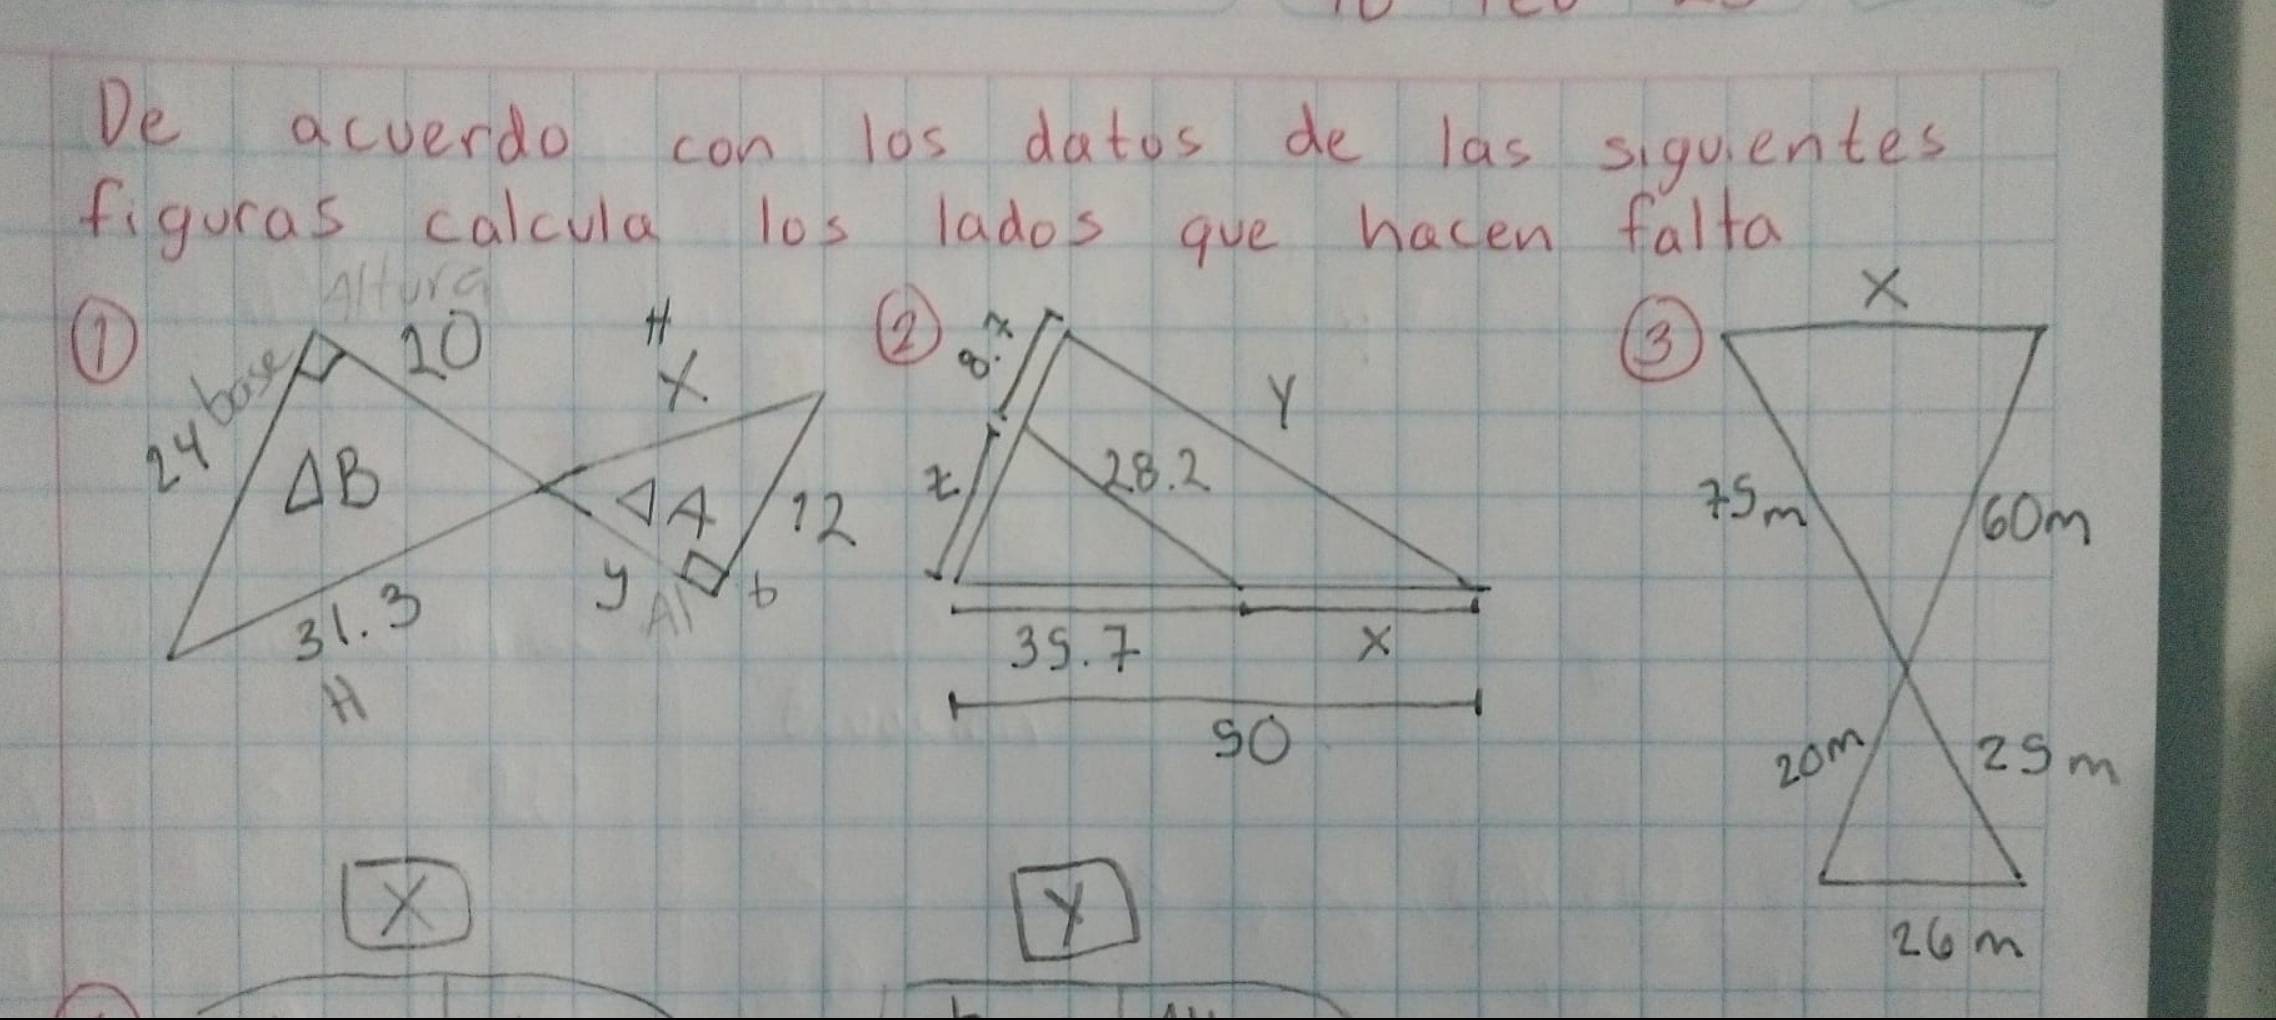 De acuerdo con los datos de las siguientes
figuras calcula los lados que hacen falta
① Altura 20 H X
24 base
ΔB ΔA 12
31.3 y Al b
H
② 8.7 Y
z 28.2
35.7 X
50
③ X
75m 60m
20m 25m
26m
X Y